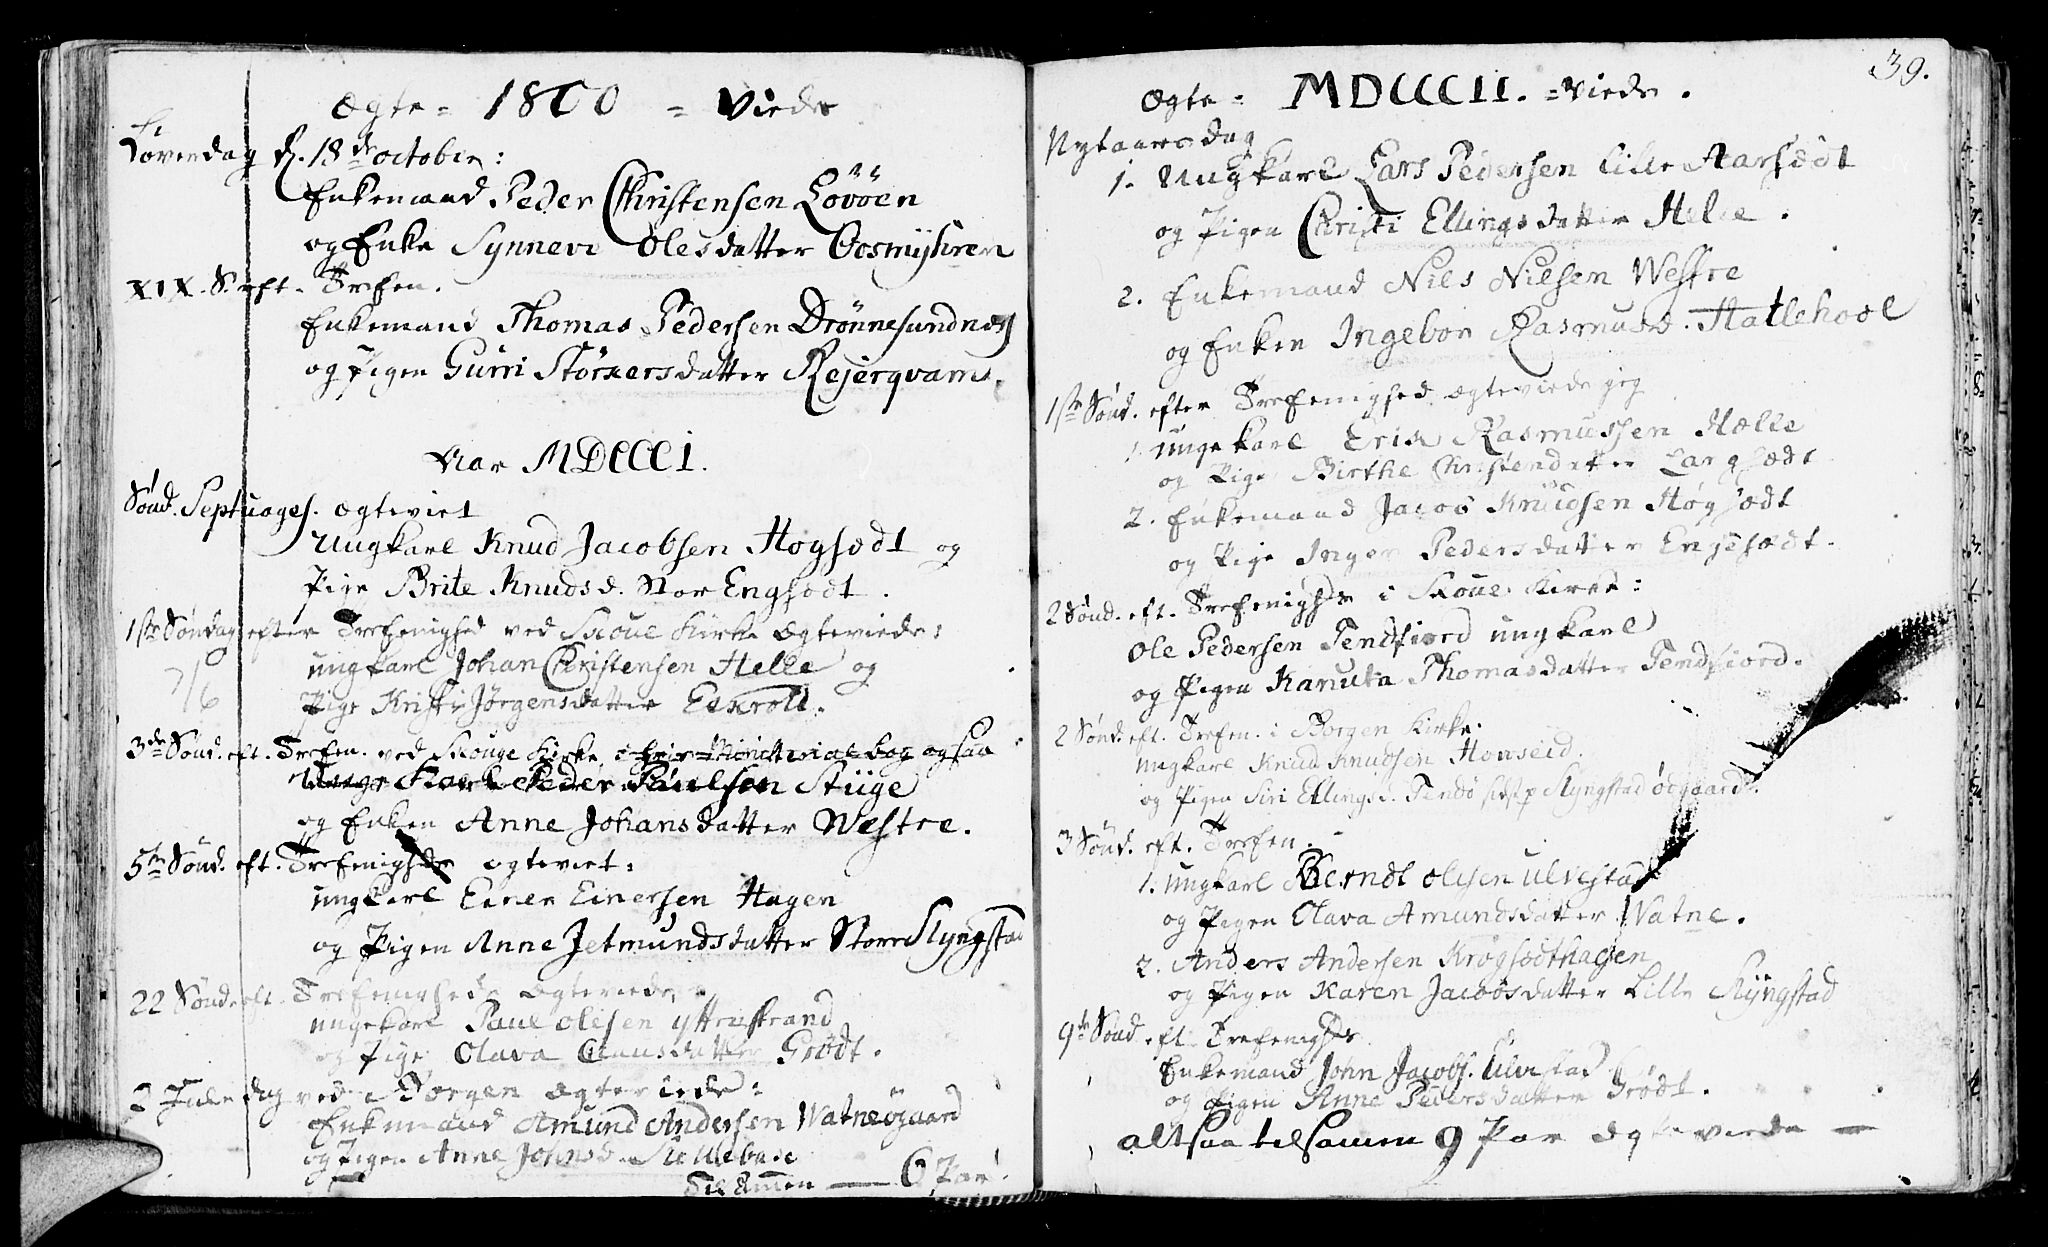 Ægte- 1800 - Viede
Løverdag d. 18de october:
Enkemand Peder Christensen Løvöen
og Enke Synneve Olesdatter Oosmyhren
XIX. S. eft. Trefen.
Enkemand Thomas Pedersen Drönnesundnes
og Pigen Gurri Störkersdatter Rejerqvams.
Aar MDCCCI.
Sönd. Septuages. ægteviet
Ungkarl Knud Jacobsen Hogsædt og
Pige Brite Knudsd. Stor Engsædt.
1ste Söndag efter Trefenighed ved Skoue Kirke Ægteviede:
ungkarl Johan Christensen Helle og
7/6
Pige Kristi Jörgensdatter Eekrold.
3de Sönd. eft. Trefen. ved Skouge Kirke, ogsaa
Unge Karl Peder Paulsen Stüge
og Enken Anne Johansdatter Westre.
5te Sönd. eft. Trefenighds ægteviet:
ungkarl Einer Einersen Hagen
og Pigen Anne Jetmundsdatter Store Slyngstad
22 Sönd. eft. Trefenigheds Ægteviede,
ungekarl Paul Olesen Yttrestrand
og Pige Olava Clausdatter Grödt.
2 Juledag ved Borgen Ægteviede:
Enkemand Amund Andersen Watneögaard
og Pigen Anne Johnsd.
Tilsamen — 6 Par.
39.
Ægte- MDCCCII. - Viede.
Nytaarsdag
1. Ungkarl Lars Pedersen Lille Aarsædt
og Pigen Christi Ellingsdatter Helle.
2. Enkemand Nils Nilsen Westre
og Enken Ingebor Rasmusd. Hatlehoel
1ste Sönd. efter Trefenighed ægteviede jeg
1 ungekarl Erik Rasmussen Hælle
og Pige Birthe Christendatter Langsædt
2. Enkemand Jacob Knudsen Høgsædt
og Pige Inger Pedersdatter Engesædt.
2 Sönd. eft. Trefenighds i Skoue Kirke:
Ole Pedersen Tendfiord ungkarl
og Pigen Kanuta Thomasdatter Tendfiord.
2 Sönd. eft. Trefen. i Borgen Kirke.
ungkarl Knud Knudsen Honseid
og Pigen Siri Ellingsd. Tendö sidst p Slyngstad ödgaard.
3 Sönd. eft. Trefen.
1. ungkarl Berndt Olesen Ulvestad
og Pigen Olava Amundsdatter Watne.
2. Anders Andersen Krogsædthagen
og Pigen Karen Jacobsdatter Lille Slÿngstad
9de Sönd. eft. Trefenighds
Enkemand John Jacobs. Ulvestad
og Pigen Anne Pedersdatter Grödt.
altsaa tilsamen 9 Par Ægteviede —